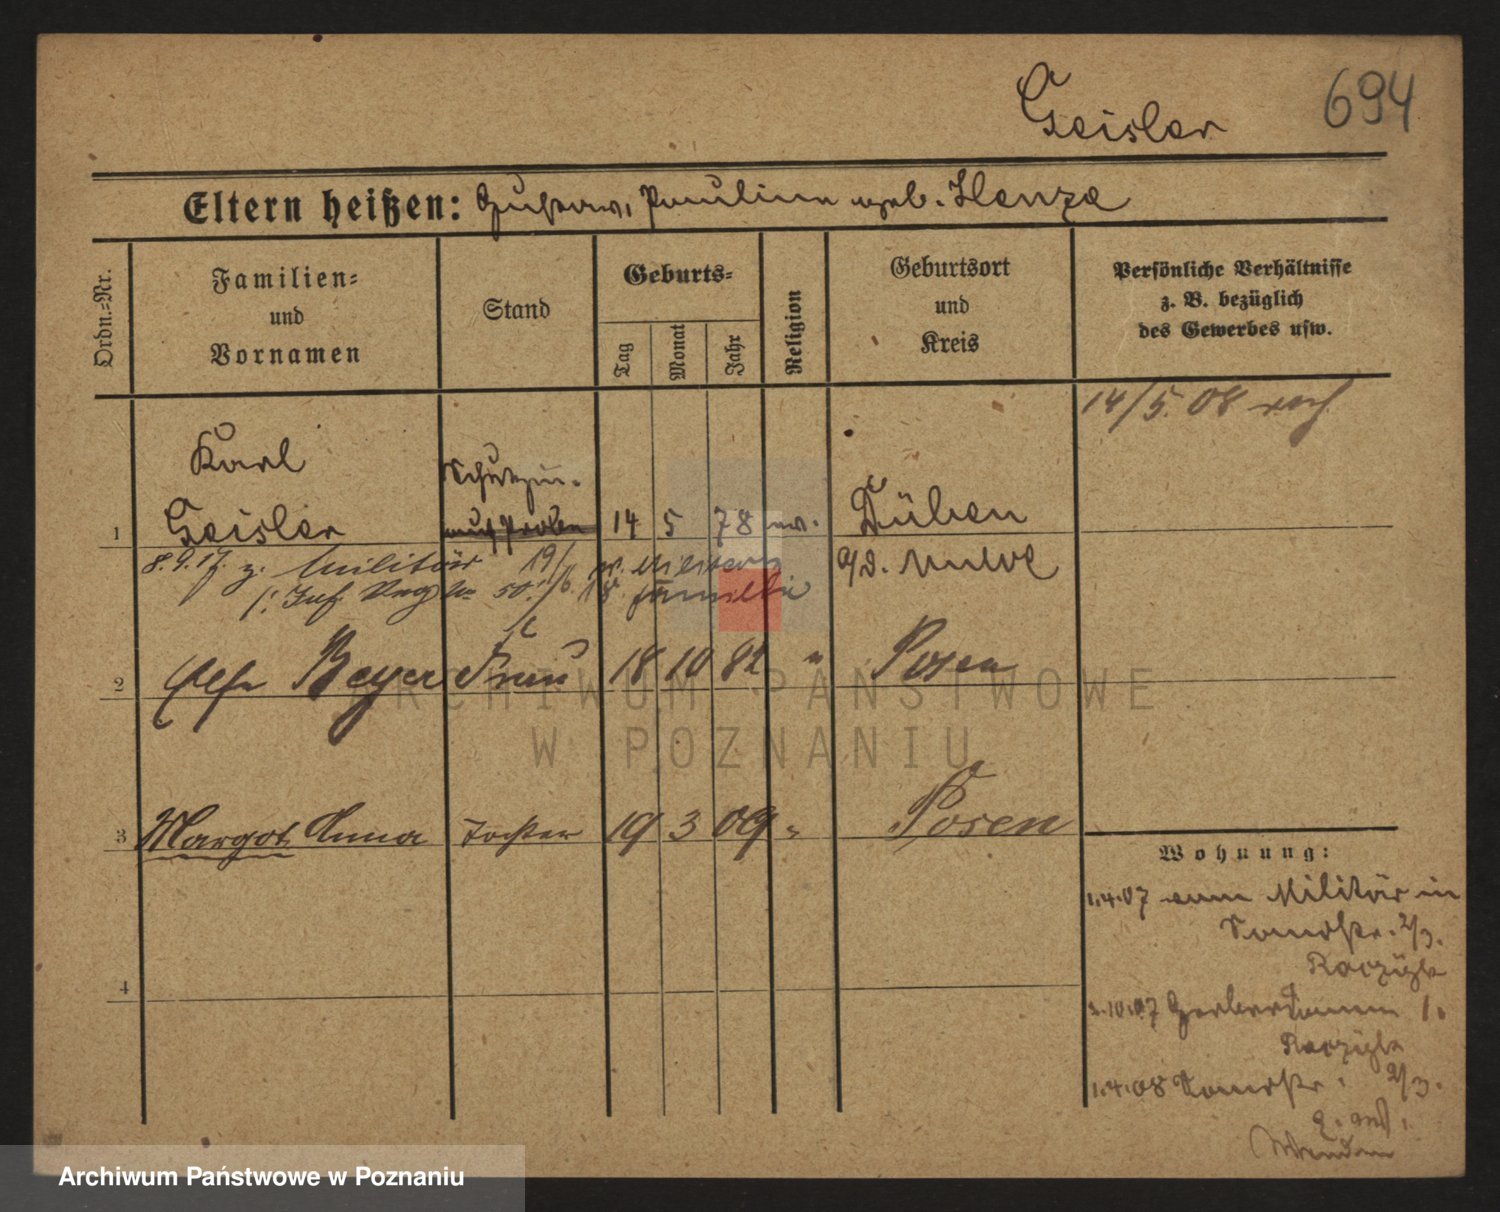 Geisler
694
Eltern heißen: Gustav, Pauline geb. Henze
Ordn.-Nr.
Familien-
und
Vornamen
Stand
Geburts-
Tag
Monat
Jahr
Religion
Geburtsort
und
Kreis
Persönliche Verhältnisse
z. B. bezüglich
des Gewerbes usw.
14/5. 08
Karl
Schutzm.
1 Geisler auf Probe 14 5 78 ev. Düben
8.9.17. z. Militär 19/6. 18. v. Militär
Inf. Reg. No 50. Familie
2 Beyer Frau 18 10 82 " Posen
3 Margot Anna Tochter 19 3 09 " Posen
Wohnung:
1.4.07 vom Militär in
2/3.
4
10.07 Gerberdamm 1.
1.4.08 2/3.
ARCHIWUM PAŃSTWOWE
W POZNANIU
Archiwum Państwowe w Poznaniu